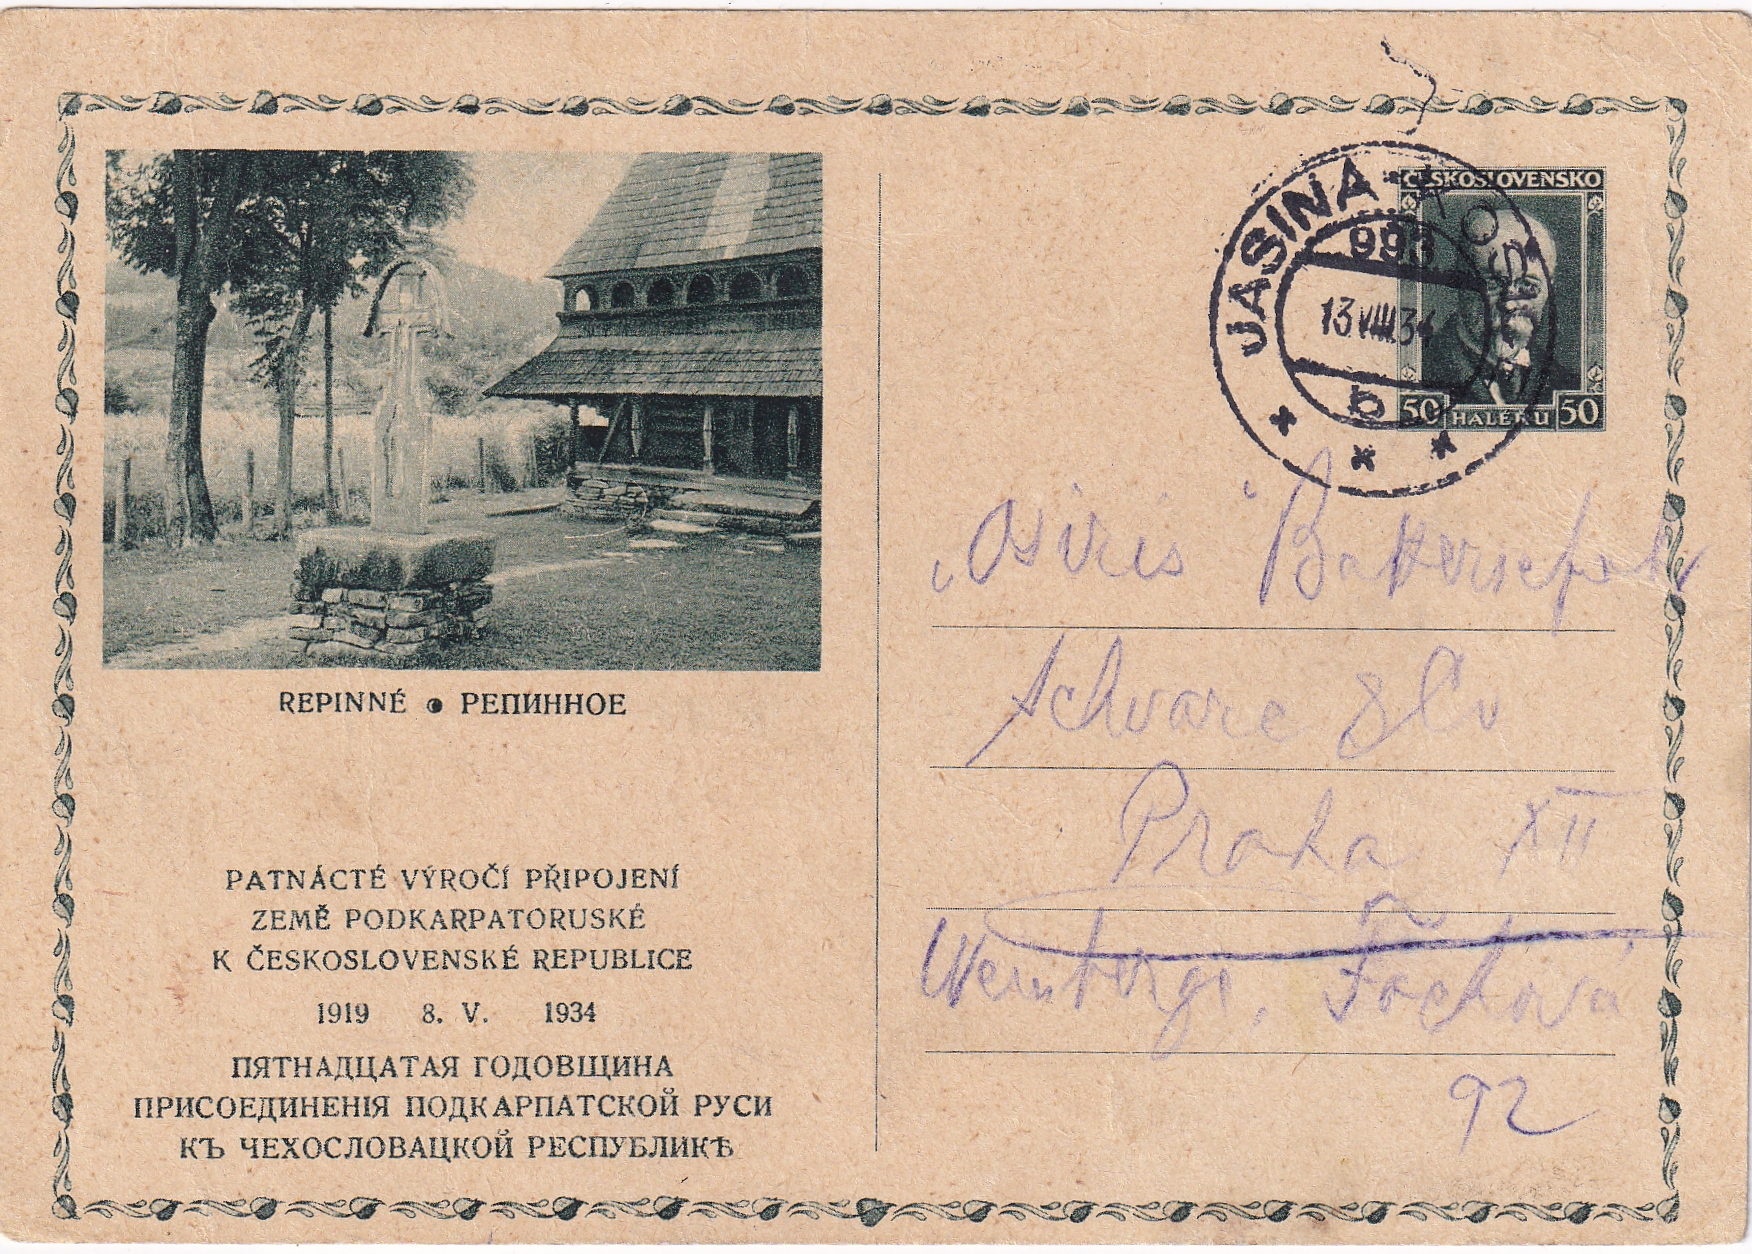 REPINNÉ • РЕПИННОЕ
PATNÁCTÉ VÝROČÍ PŘIPOJENÍ
ZEMĚ PODKARPATORUSKÉ
K ČESKOSLOVENSKÉ REPUBLICE
1919 8. V. 1934
ПЯТНАДЦАТАЯ ГОДОВЩИНА
ПРИСОЕДИНЕНІЯ ПОДКАРПАТСКОЙ РУСИ
КЪ ЧЕХОСЛОВАЦКОЙ РЕСПУБЛИКѢ
ČESKOSLOVENSKO
50 HALÉŘŮ 50
JASINA
13.VIII.34
b
Osiris
Schwarc & Co
Praha XII
Weinberge, Fochová
92